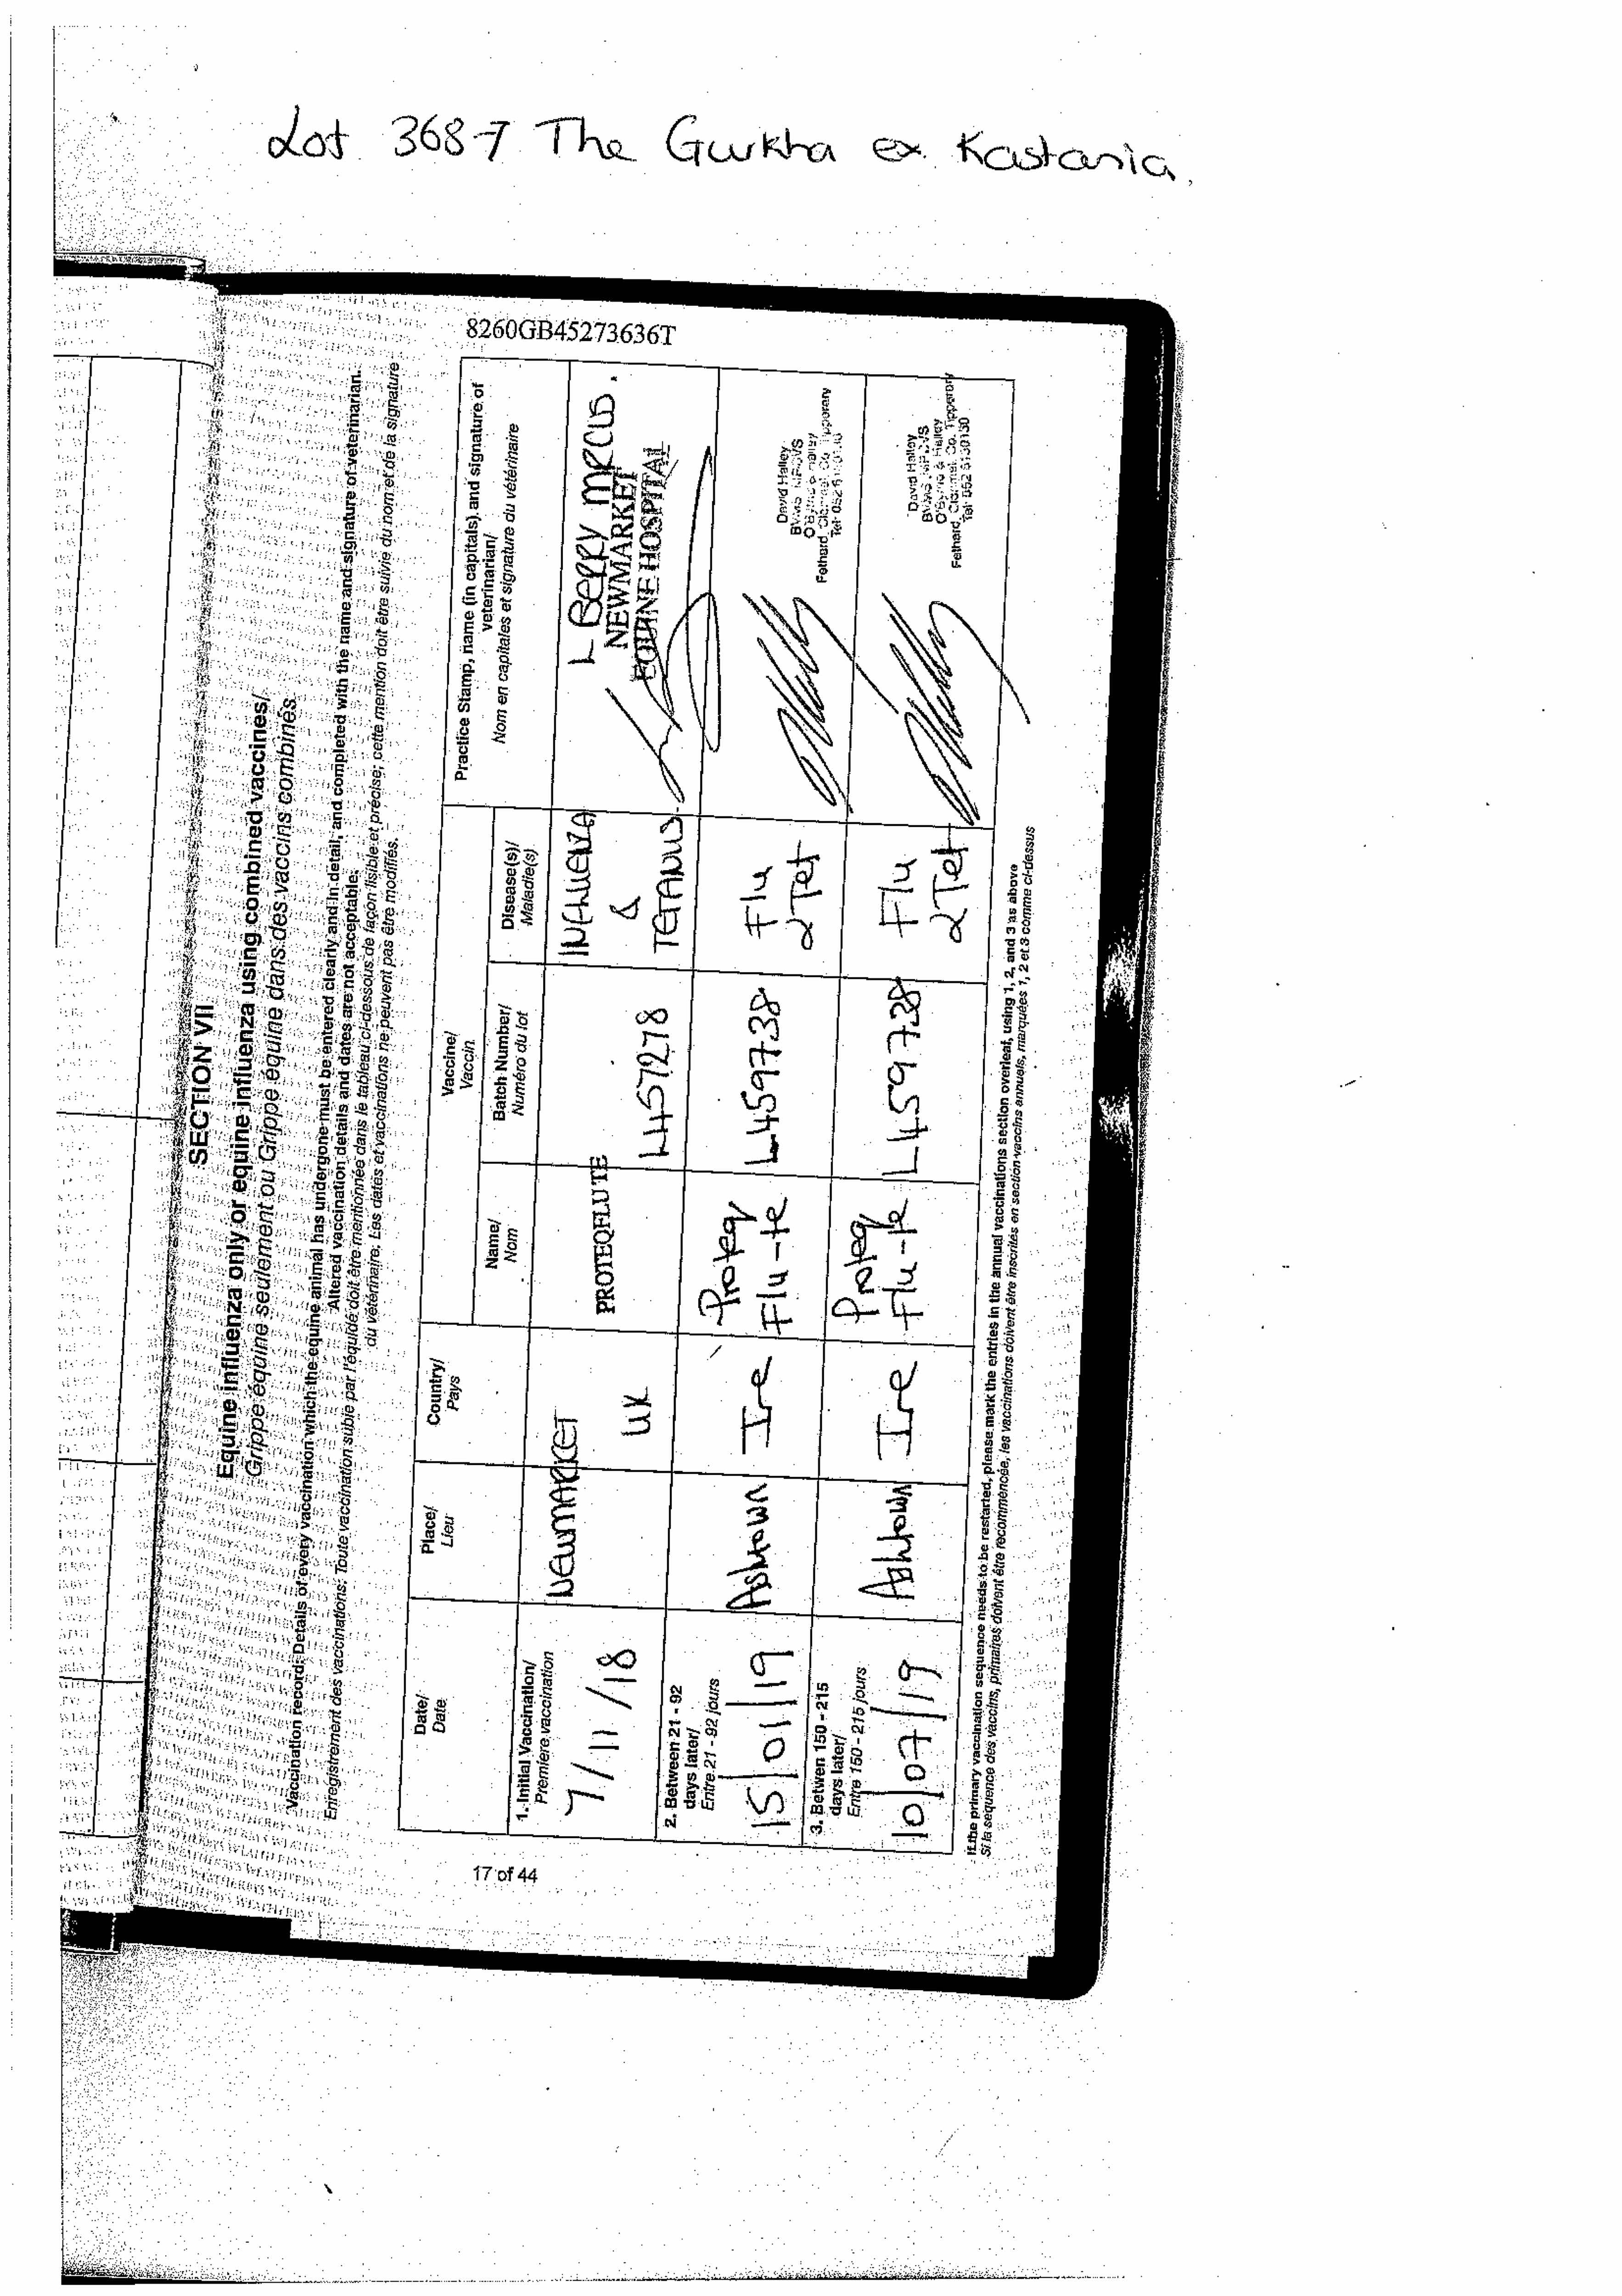 Lot 368-7 The Gurkha ex. Kastania.
8260GB45273636T
SECTION VII
Equine influenza only or equine influenza using combined vaccines/
Grippe équine seulement ou Grippe équine dans des vaccins combinés
Vaccination record: Details of every vaccination which the equine animal has undergone must be entered clearly and in detail, and completed with the name and signature of veterinarian.
Altered vaccination details and dates are not acceptable.
Enregistrement des vaccinations: Toute vaccination subie par l'équidé doit être mentionnée dans le tableau ci-dessous de façon lisible et précise; cette mention doit être suivie du nom et de la signature
du vétérinaire. Les dates et vaccinations ne peuvent pas être modifiés.
Date/
Date
Place/
Lieu
Country/
Pays
Vaccine/
Vaccin
Name/
Nom
Batch Number/
Numéro du lot
Disease(s)/
Maladie(s)
Practice Stamp, name (in capitals) and signature of
veterinarian/
Nom en capitales et signature du vétérinaire
1. Initial Vaccination/
Premiere vaccination
7/11/18
NEWMARKET
UK
PROTEQFLU TE
L457278
INFLUENZA
&
TETANUS
L BERRY MRCVS.
NEWMARKET
EQUINE HOSPITAL
2. Between 21 - 92
days later/
Entre 21 - 92 jours
15/01/19
Ashtown
Ire
Proteq
Flu-te
L459738
Flu
& Tet
David Halley
Fethard, Clonmel, Co. Tipperary
3. Between 150 - 215
days later/
Entre 150 - 215 jours
10/07/19
Ashtown
Ire
Proteq
Flu-te
L459738
Flu
& Tet
David Halley
O'Byrne & Halley
Fethard, Clonmel, Co. Tipperary
Tel: 052 6130130
If the primary vaccination sequence needs to be restarted, please mark the entries in the annual vaccinations section overleaf, using 1, 2, and 3 as above
Si la sequence des vaccins, primaires doivent être recommencée, les vaccinations doivent être inscrites en section vaccins annuels, marquées 1, 2 et 3 comme ci-dessus
17 of 44